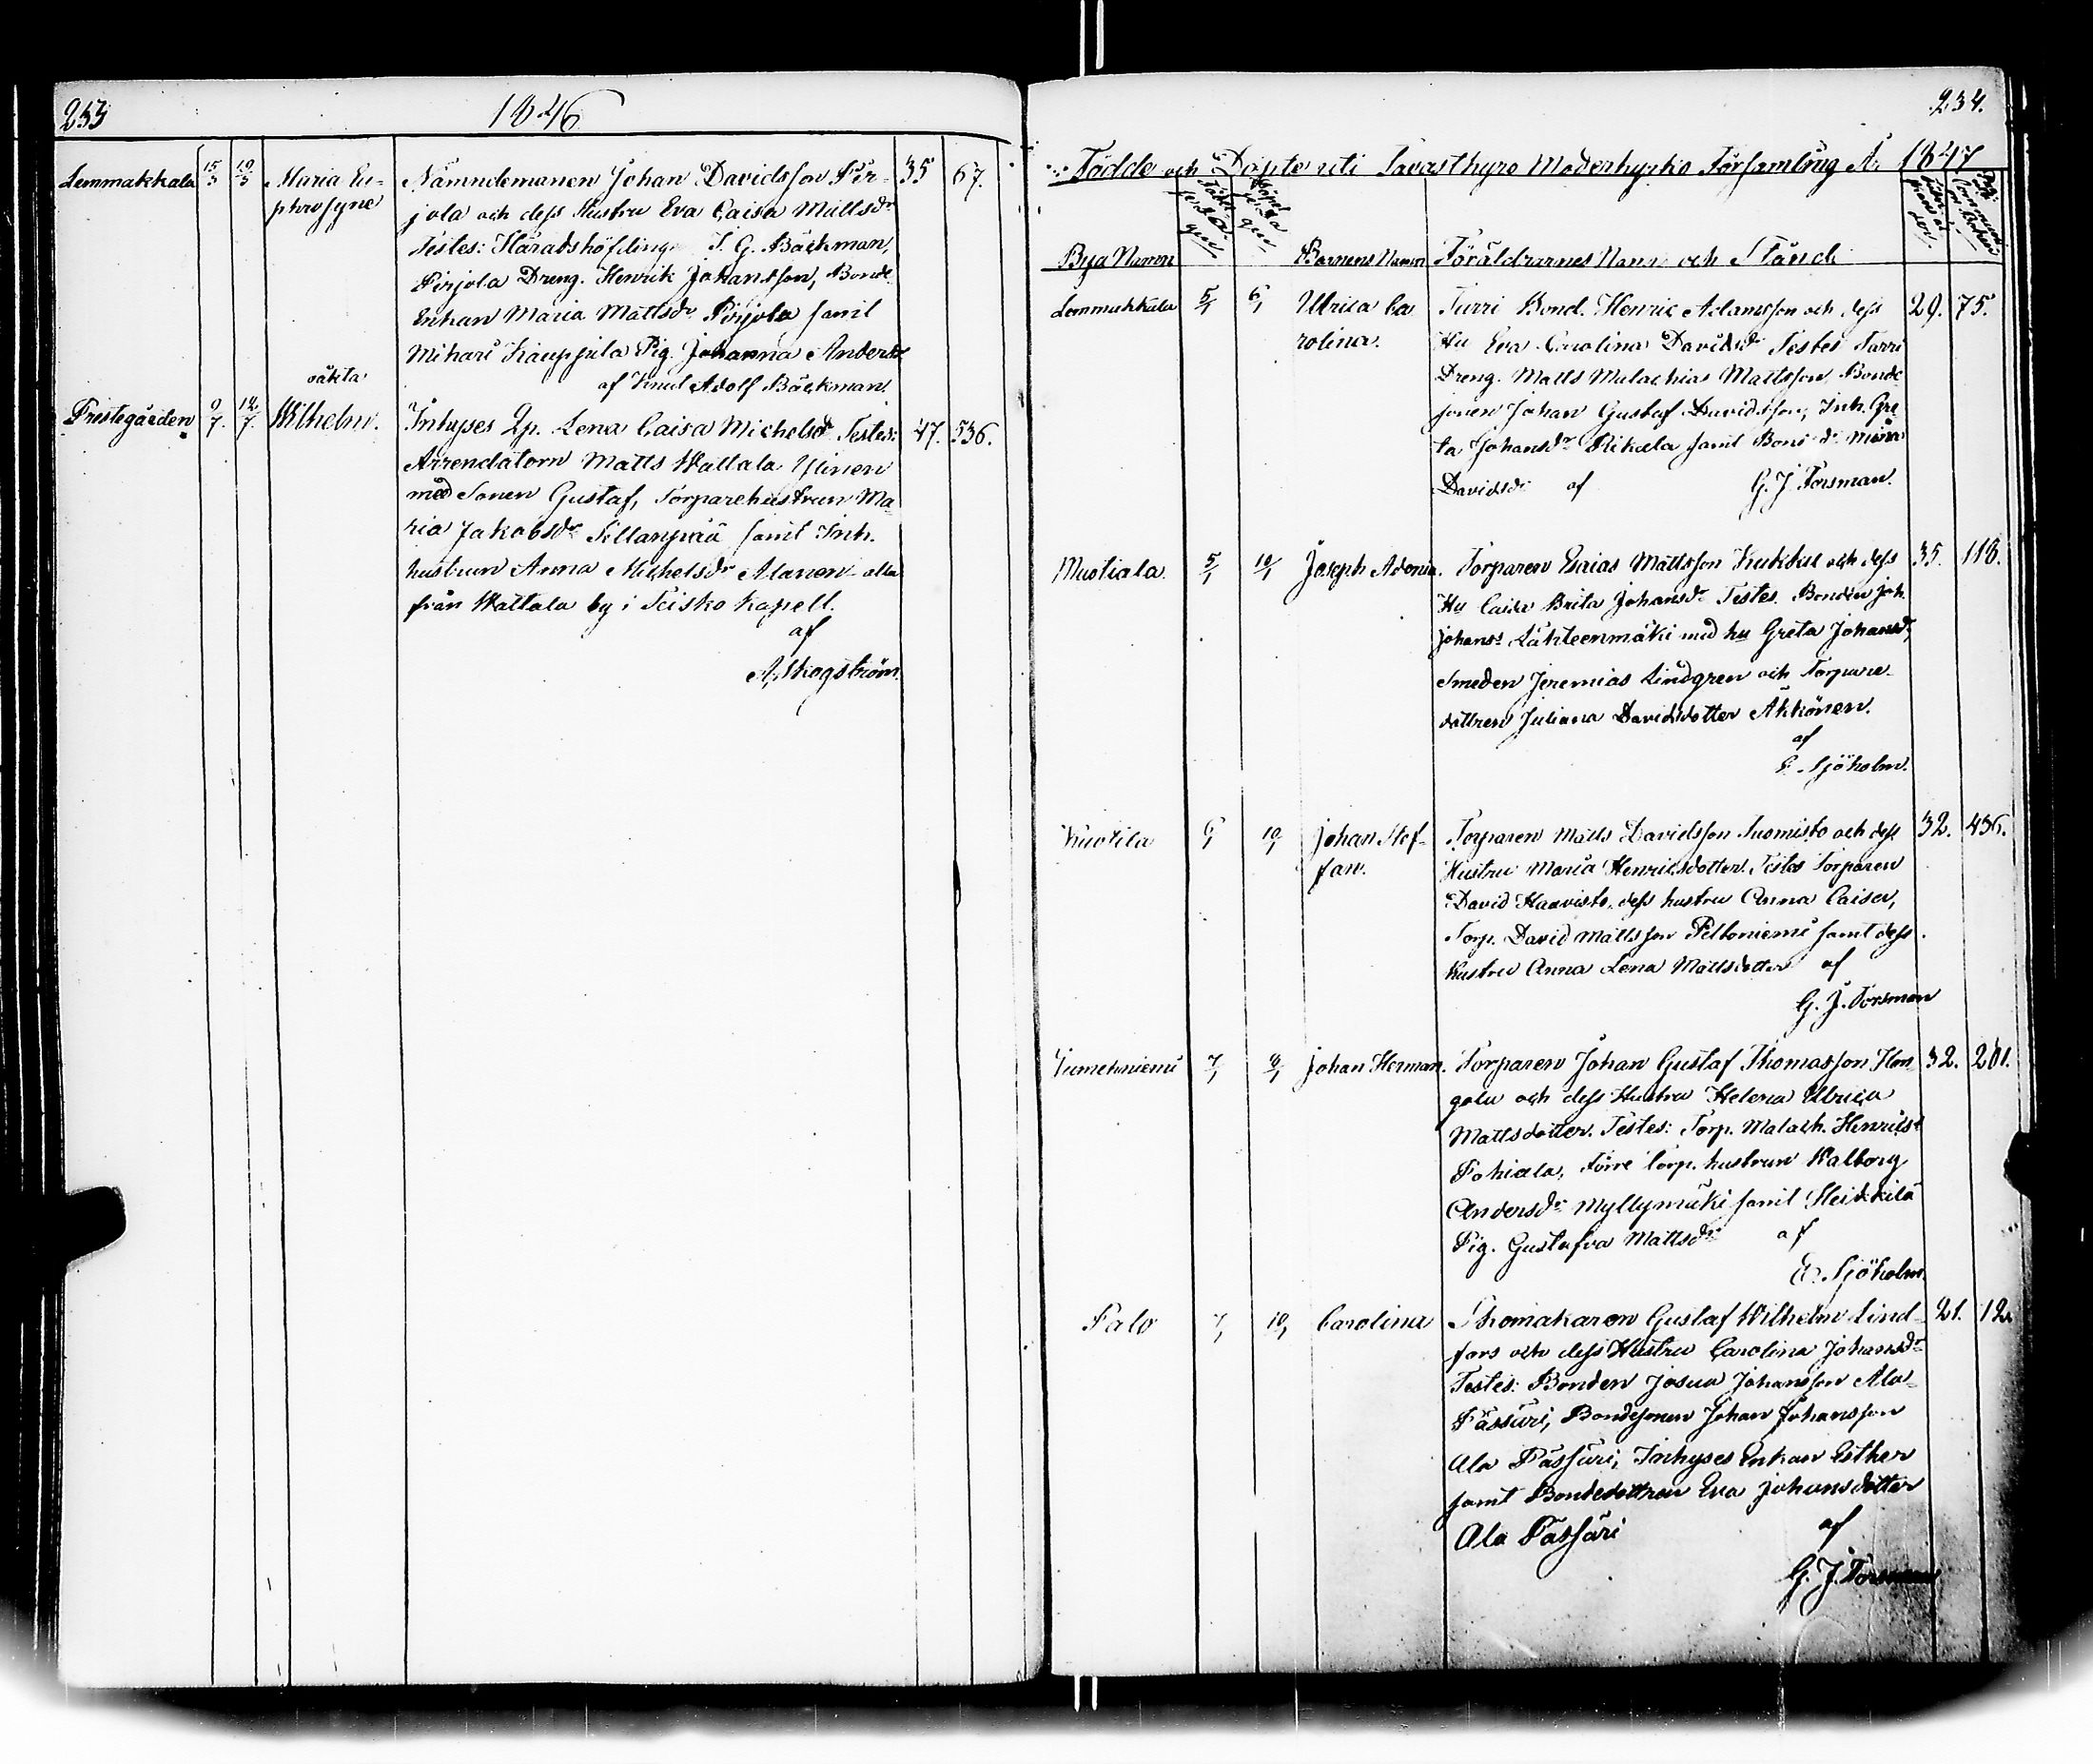 233
1846
Lemmakkala 15/3 19/3 Maria Eu- Nämndemannen Johan Davidsson Pir- 35 67.
phrosyne jola och dess Hustru Eva Caisa Mattsdr
Testes: Häradshöfding J. G. Bäckman,
Pirjola Dreng. Henrik Johansson, Bonde
Enkan Maria Mattsdr Pirjola samt
Mihari Kauppila Pig. Johanna Andersd
af Knut Adolf Bäckman.
oäkta
Prestegården 9/7. 12/7. Wilhelm. Inhyses Qp. Lena Caisa Michelsdr Testes: 47. 536.
Arrendatorn Matts Wattala Ylinen
med Sonen Gustaf, Torparehustrun Ma-
ria Jakobsdr Sillanpää samt Inh.
hustrun Anna Michelsdr Alanen alla
från Wattala by i Teisko Kapell.
af
A. Skogström.
234.
Födde och Döpte uti Tavastkyro Moderkyrko Församling År 1847
Bya Namn Barnens Namn Föräldrarnes Namn och Stånd
Lemmakkala 5/1 6/1 Ulrica Ca Turri Bond. Henric Adamsson och dess 29. 75.
rolina. Hu Eva Carolina Davidsdr Testes Turri
Dreng. Matts Malachias Mattsson, Bonde
sonen Johan Gustaf Davidsson, Inh. Gre
ta Johansdr Rikala samt Bond dr Maria
Davidsdr af G. J. Forsman.
Mustiala. 5/1 10/1 Joseph Adonia. Torparen Esaias Mattsson Kukkul och dess 35. 118.
Hu Caisa Brita Johansdr Testes. Bonden Joh.
Johans. Lähteenmäki med hu Greta Johansdr,
Smeden Jeremias Lindgren och Torpare-
dottren Juliana Davidsdotter Äkkönen.
af
E. Sjöholm.
Kuotila 6/1 10/1 Johan Stef- Torparen Matts Davidsson Suomisto och dess 32. 436.
fan. Hustru Maria Henricsdotter. Testes Torparen
David Haavisto, dess hustru Anna Caisa,
Torp. David Mattsson Peltoniemi samt dess
hustru Anna Lena Mattsdotter af
G. J. Forsman
7/1 8/1 Johan Herman. Torparen Johan Gustaf Thomasson Hon 32. 201.
gola och dess Hustru Helena Ulrica
Mattsdotter. Testes: Torp. Malach. Henricss
Pohiala, Förre Torp. hustrun Walborg
Andersdr Myllymäki samt Heikkilä
Pig. Gustafva Mattsdr af
E. Sjöholm.
Palo 7/1 10/1 Carolina Skomakaren Gustaf Wilhelm Lind- 21. 12.
fors och dess Hustru Carolina Johansdr
Testes: Bonden Josua Johansson Ala-
Passuri, Bondesonen Johan Johansson
Ala Passuri, Inhyses Enkan Esther
samt Bondedottren Eva Johansdotter
Ala Passuri af
G. J. Forsman